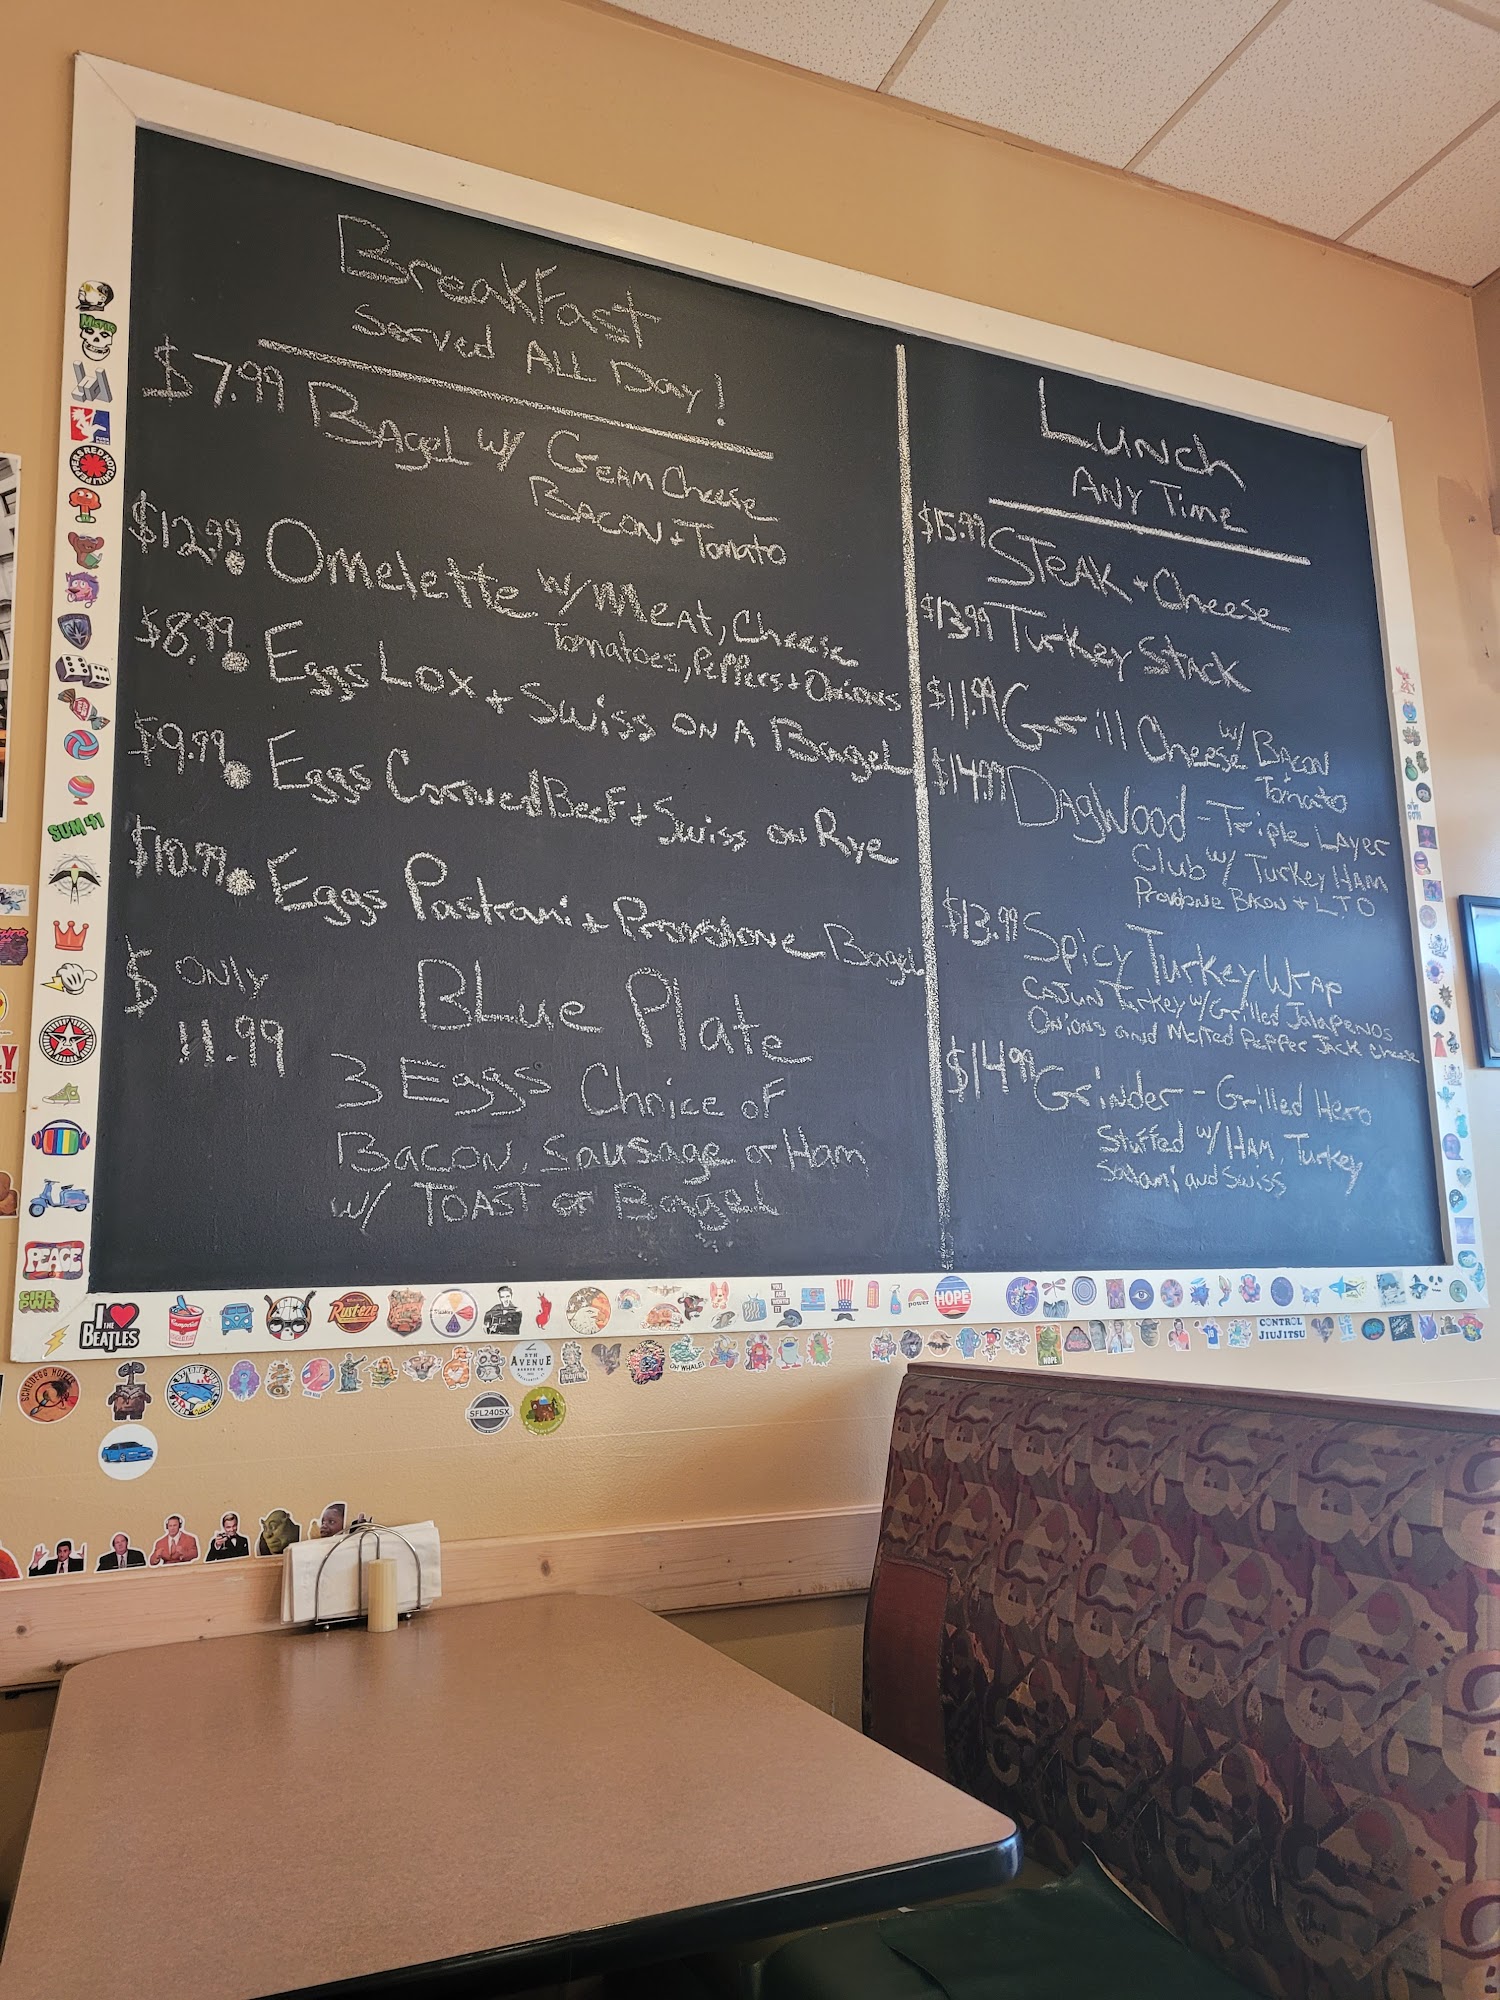 BreakFast
Served ALL Day!
$7.99 BAgel w/ Cream Cheese
BACON + Tomato
$12.99 Omelette w/ Meat, Cheese
Tomatoes, Peppers + Onions
$8.99 Eggs Lox + Swiss ON A Bagel
$9.99 Eggs Corned Beef + Swiss on Rye
$10.99 Eggs Pastrami + Provolone Bagel
$ ONLY
11.99
BLue Plate
3 Eggs Choice of
BACON, Sausage or Ham
w/ TOAST or Bagel
Lunch
ANY Time
$15.99 STEAK + Cheese
$13.99 Turkey Stack
$11.99 Grill Cheese w/ Bacon
+
Tomato
$14.99 DAgWood - Triple LAyer
Club w/ Turkey HAM
Provolone Bacon + LTO
$13.99 Spicy Turkey Wrap
CAJUN Turkey w/ Grilled Jalapenos
Onions and Melted Pepper Jack Cheese
$14.99 Grinder - Grilled Hero
Stuffed w/ HAM, Turkey
Salami and Swiss
MISFITS
RED HOT CHILI PEPPERS
SUM 41
PEACE
GIRL
PWR
I
THE
BEATLES
Rust-eze
power
HOPE
5TH
AVENUE
OH WHALE!
SFL240SX
NOPE
CONTROL
JIUJITSU